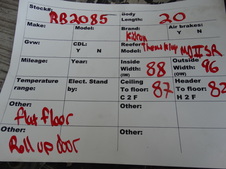 Stock#: RB2085 Body Length: 20
Make: Model: Brand: Kidron Air brakes: Y N
Gvw: CDL: Y N Reefer Thermo King MDII SR
Mileage: Year: Inside Width: (IW) 88 Outside Width: (OW) 96
Temperature range: Elect. Stand by: Ceiling To floor: C 2 F 87 Header To floor: H 2 F 82
Other: flat floor Other:
Other: Roll up door